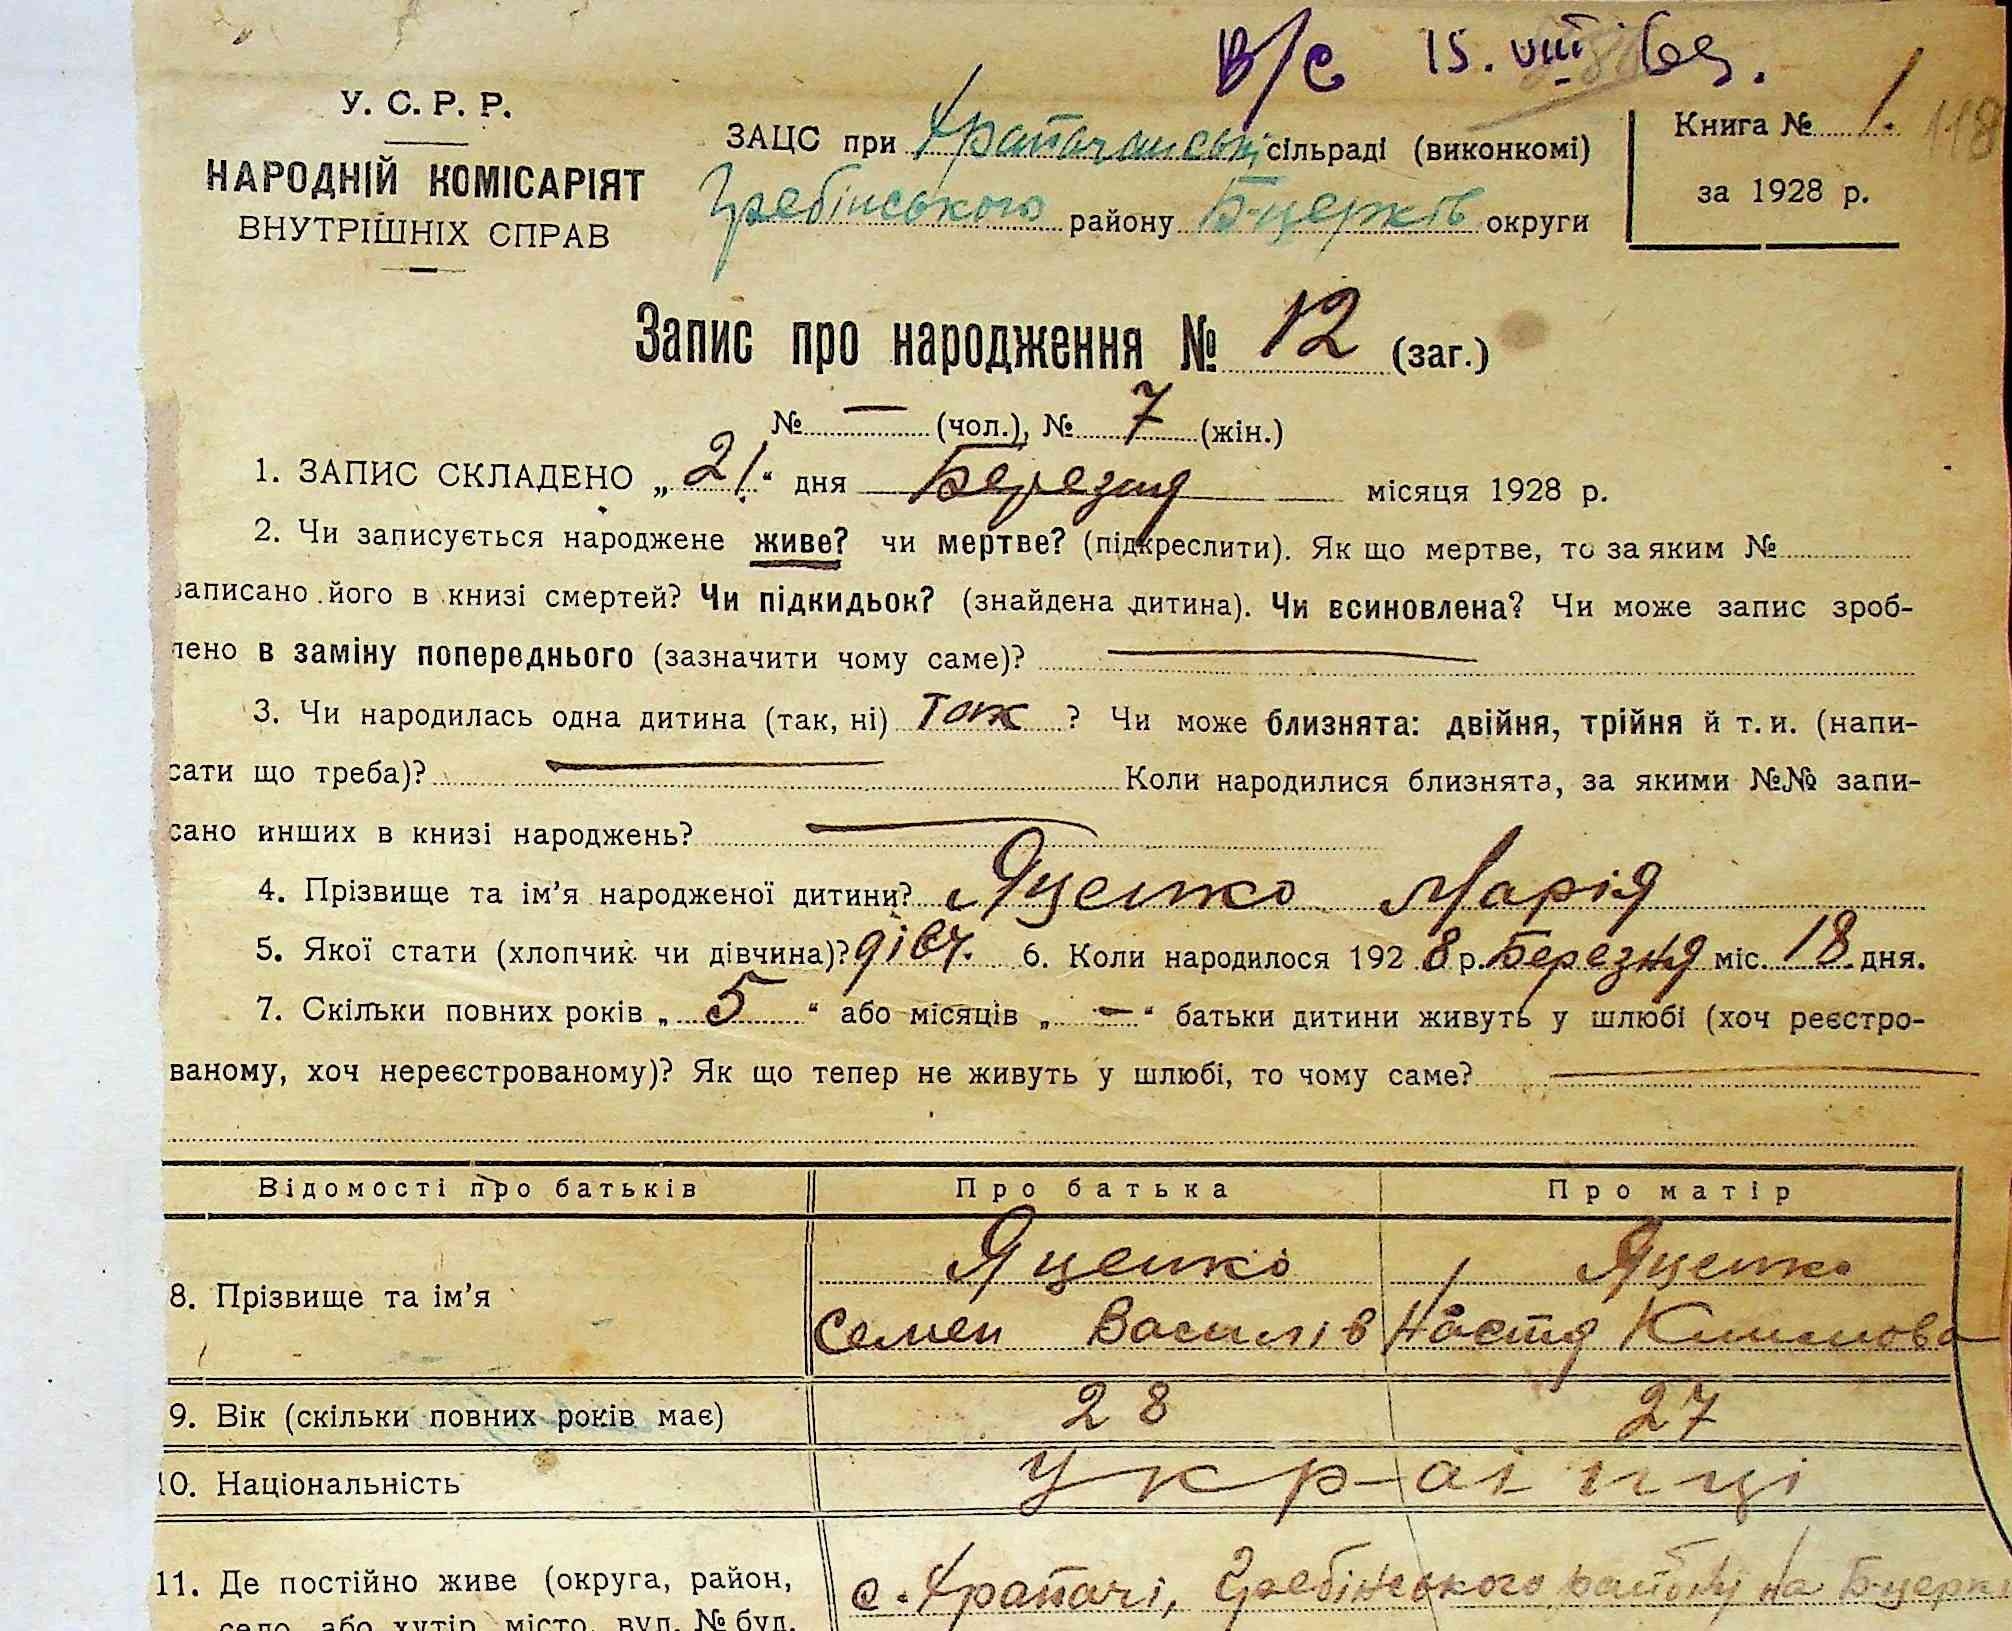 В/с 15. VIII 69.
У. С. Р. Р.
НАРОДНІЙ КОМІСАРІЯТ
ВНУТРІШНІХ СПРАВ
ЗАЦС при Храпачанській сільраді (виконкомі)
Гребінського району Б-церків округи
Книга № 1. 118
за 1928 р.
Запис про народження № 12 (заг.)
№ — (чол.), № 7 (жін.)
1. ЗАПИС СКЛАДЕНО „21“ дня Березня місяця 1928 р.
2. Чи записується народжене живе? чи мертве? (підкреслити). Як що мертве, то за яким №
записано його в книзі смертей? Чи підкидьок? (знайдена дитина). Чи всиновлена? Чи може запис зроб-
лено в заміну попереднього (зазначити чому саме)? —
3. Чи народилась одна дитина (так, ні) так ? Чи може близнята: двійня, трійня й т. и. (напи-
сати що треба)? — Коли народилися близнята, за якими №№ запи-
сано инших в книзі народжень? —
4. Прізвище та ім’я народженої дитини? Яценко Марія
5. Якої стати (хлопчик чи дівчина)? дівч. 6. Коли народилося 1928 р. Березня міс. 18 дня.
7. Скільки повних років „ 5 “ або місяців „ — “ батьки дитини живуть у шлюбі (хоч реєстро-
ваному, хоч нереєстрованому)? Як що тепер не живуть у шлюбі, то чому саме? —
Відомості про батьків Про батька Про матір
8. Прізвище та ім’я Яценко Яценко
Семен Василів Настя Климова
9. Вік (скільки повних років має) 28 27
10. Національність українці
11. Де постійно живе (округа, район, с. Храпачі, Гребінського району на Б-церкі
село, або хутір, місто, вул. № буд.